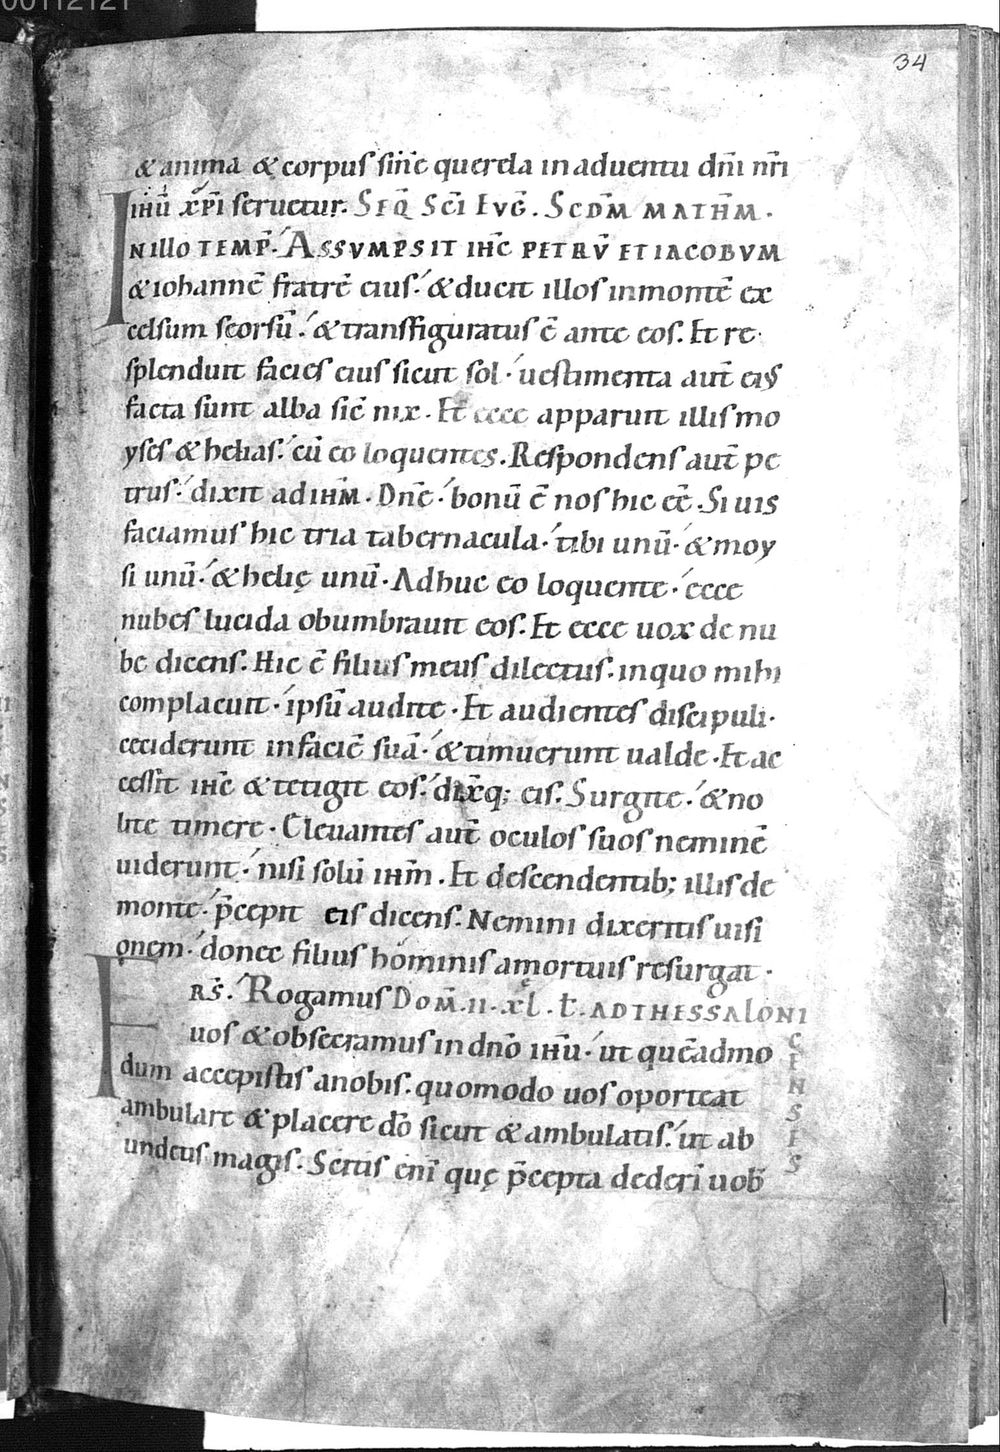 00112121
34
& anima & corpus sin̄e querela in aduentu dn̄i nr̄i
ihū xp̄i seruetur. SEQ̄ SC̄I EVḠ. SCD̄M MATH̄M.
IN ILLO TEMP̄. ASSVMPSIT IHC̄ PETRV̄ ET IACOBVM
& iohannē fratrē eius. & ducit illos in montē ex
celsum seorsū. & transfiguratus ē ante eos. Et re
splenduit facies eius sicut sol. uestimenta aut̄ eius
facta sunt alba sic̄ nix. Et ecce apparuit illis mo
yses & helias. cū eo loquentes. Respondens aut̄ pe
trus. dixit ad ihm̄. Dn̄e. bonū ē nos hic eē. Si uis
faciamus hic tria tabernacula. tibi unū. & moy
si unū. & helię unū. Adhuc eo loquente. ecce
nubes lucida obumbrauit eos. Et ecce uox de nu
be dicens. Hic ē filius meus dilectus. in quo mihi
complacuit. ipsū audite. Et audientes discipuli.
ceciderunt in faciē suā. & timuerunt ualde. Et ac
cessit ihc̄ & tetigit eos. dix̄q; eis. Surgite. & no
lite timere. Eleuantes aut̄ oculos suos neminē
uiderunt. nisi solū ihm̄. Et descendentib; illis de
monte. p̄cepit eis dicens. Nemini dixeritis uisi
onem. donec filius hominis a mortuis resurgat.
FRS̄. Rogamus DOM̄. II. XL. L̄. AD THESSALONI
CENSIS
uos & obsecramus in dn̄o ihū. ut quēadmo
dum accepistis a nobis. quomodo uos oporteat
ambulare & placere dō sicut & ambulatis. ut ab
undetis magis. Scitis enī quę p̄cepta dederī uob̄